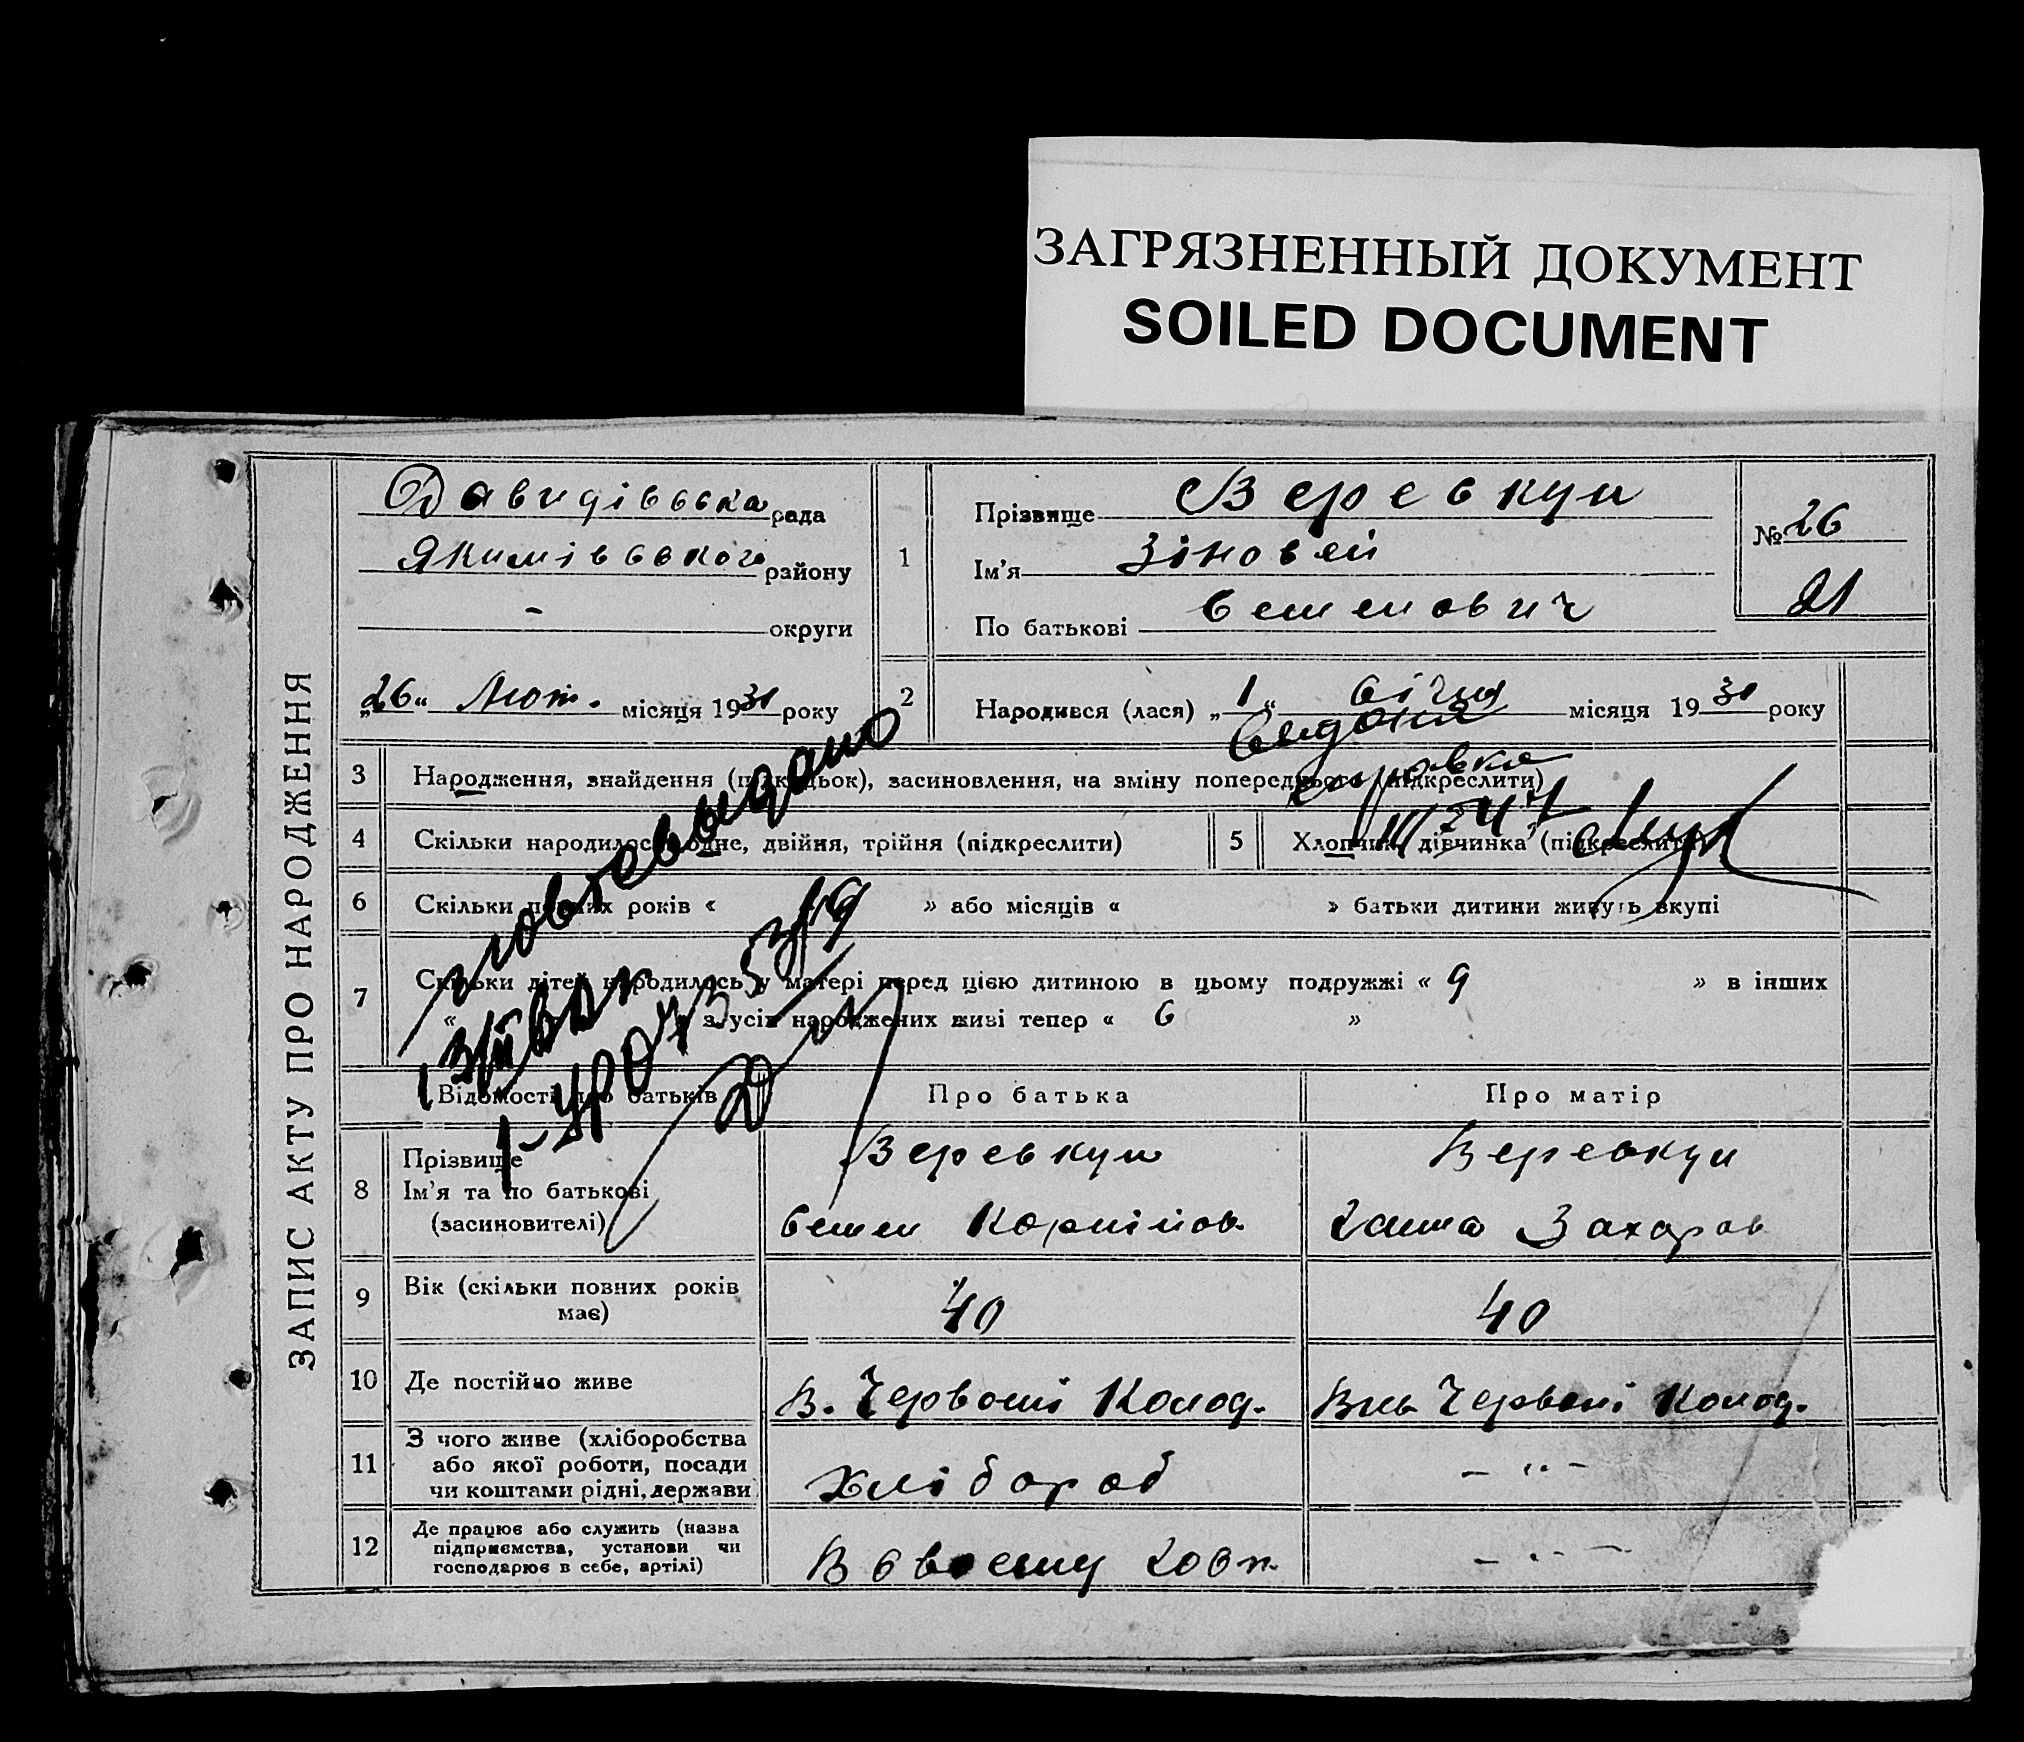 ЗАГРЯЗНЕННЫЙ ДОКУМЕНТ
SOILED DOCUMENT
ЗАПИС АКТУ ПРО НАРОДЖЕННЯ
Давидівська рада
Якимівського району
- округи
„26“ Лют. місяця 1931 року
1
Прізвище Веревкин
Ім'я Зіновей
По батькові Семенович
№ 26
21
2
Народився (лася) „1“ січня місяця 1931 року
3 Народження, знайдення (підкидьок), засиновлення, на зміну попереднього (підкреслити)
4 Скільки народилось: одне, двійня, трійня (підкреслити)
5 Хлопчик, дівчинка (підкреслити)
6 Скільки повних років « » або місяців « » батьки дитини живуть вкупі
7 Скільки дітей народилось у матері перед цією дитиною в цьому подружжі « 9 » в інших
« з усіх народжених живі тепер « 6 »
повтсвыдано
Відомості про батьків
Про батька
Про матір
8 Прізвище
Ім'я та по батькові
(засиновителі)
Веревкин
Семен Корнійов.
Веревкин
Ганна Захаров
9 Вік (скільки повних років має)
40
40
10 Де постійно живе
В. Червоні Колод.
Вив Червоні Колод.
11 З чого живе (хліборобства
або якої роботи, посади
чи коштами рідні, держави
Хлібороб
- " -
12 Де працює або служить (назва
підприємства, установи чи
господарює в себе, артілі)
В своєму госп.
- " -